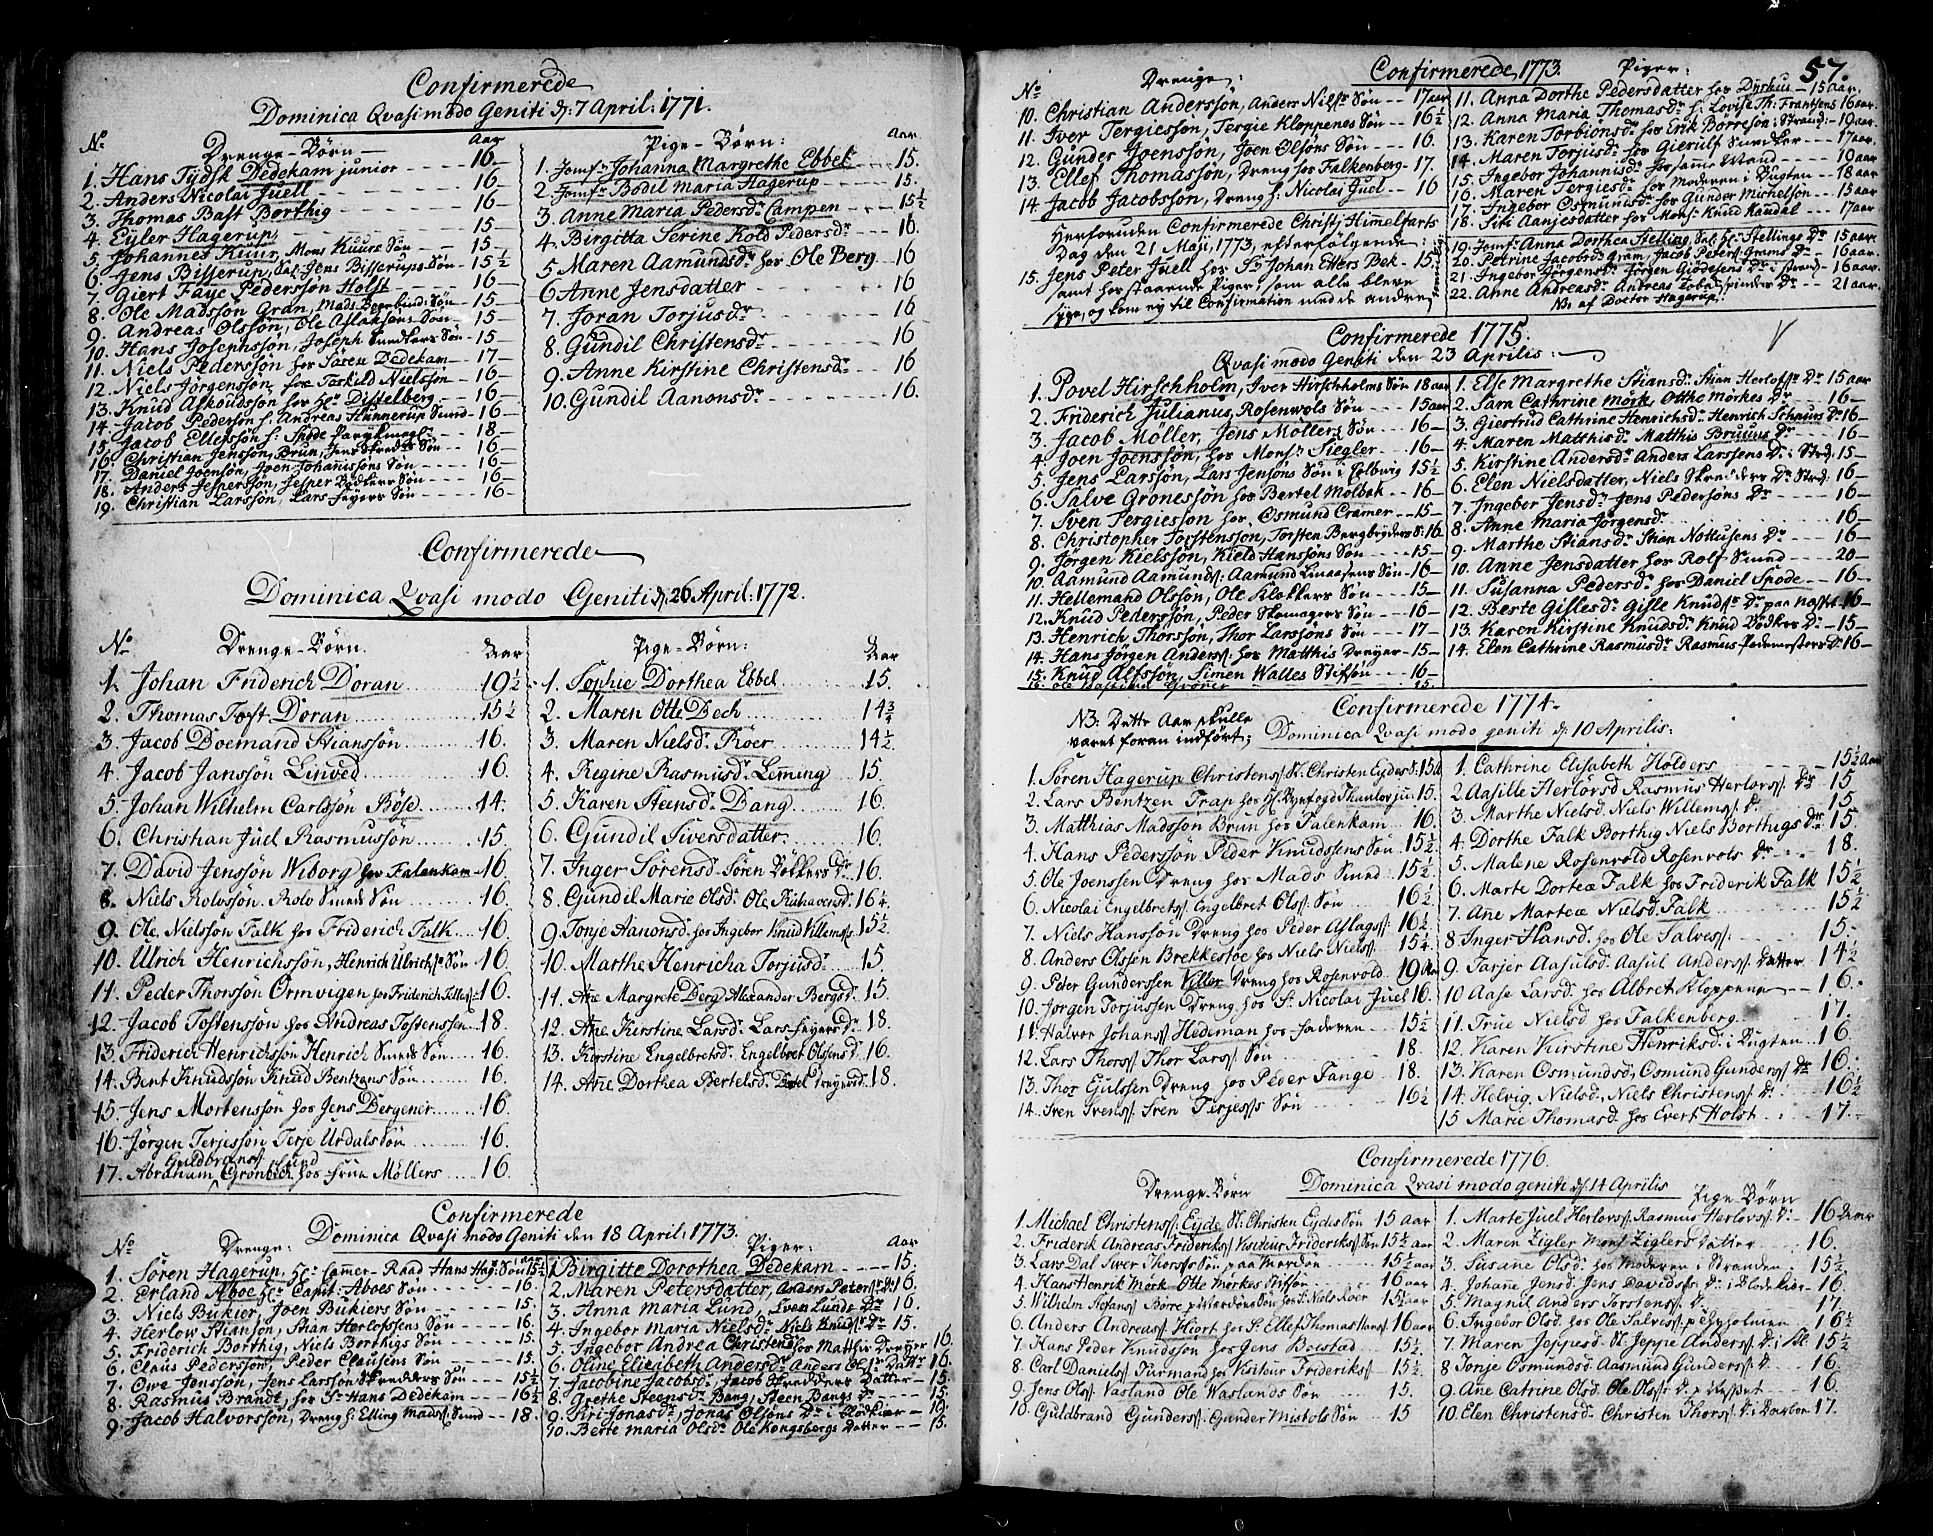 Confirmerede
Dominica Qvasimodo Geniti d: 7 April: 1771.
No Drenge-Börn Aar
1. Hans Tydsk Dedekam junior 16
2. Anders Nicolai Juell 16
3. Thomas Bast Borthig 16
4. Eyler Hagerup 15
5. Johannes Kuur, Mons Kuurs Søn 15
6. Jens Bisserup, Sal: Jens Bisserups Søn 15½
7. Giert Faye Pedersøn Holst 16
8. Ole Madsson Gran, Mads Søn 15
9. Andreas Olssøn, Ole Aslaksøns Søn 15
10. Hans Josephssøn, Joseph Snedkers Søn 15
11. Niels Pederssøn hos Søren Dedekam 17
12. Niels Jørgenssøn, hos Tarkild Nielssøn 16
13. Knud Asloudssøn hos Hr Disselberg 16
14. Jacob Pedersøn h: Andreas Hunnerup Smed 16
15. Jacob Ellefssøn h: Spøde 18
16. Christian Jenssøn, Brun, Jens Søn 16
17. Daniel Joensøn, Joen Johannissøns Søn 16
18. Anders Jesperssøn, Jesper Bødkers Søn 16
19. Christian Larssøn, Lars Feyers Søn 16
Pige-Börn: Aar
1. Jomfr Johanna Margrethe Ebbel 15.
2. Jomfr Bodil Maria Hagerup 15.
3. Anne Maria Pedersdr Campen 15½
4. Birgitta Serine Kold Pedersdr 16.
5. Maren Aamundsdr hos Ole Berg 16
6. Anne Jensdatter 16
7. Joran Torjusdr 16
8. Gundil Christensdr 16
9. Anne Kirstine Christensdr 16
10. Gundil Aanonsdr 16.
Confirmerede
Dominica Qvasi modo Geniti d: 26 April: 1772.
No Drenge-Börn. Aar
1. Johan Friderich Doran 19½
2. Thomas Toft Doran 15½
3. Jacob Doemand Stianssøn 16.
4. Jacob Janssøn Linved 16.
5. Johan Wilhelm Carlssøn Böse 14.
6. Christian Juel Rasmussøn 15.
7. David Jenssøn Wiborg hos Falenkam 16.
8. Niels Rolvssøn. Rolv Smeds Søn 16.
9. Ole Nielssøn Falk hos Friderich Falk 16.
10. Ulrich Henrichssøn, Henrich Ulrichs Søn 16.
11. Peder Thorssøn Ormvigen hos Friderich 16.
12. Jacob Tostenssøn hos Andreas Tostenssen 18.
13. Friderich Henrichssøn Henrich Smeds Søn 16.
14. Bent Knudssøn Knud Bentzens Søn 16.
15. Jens Mortenssøn hos Jens Bergener 16.
16. Jørgen Terjessøn Terje Urdals Søn 16.
17. Abraham Guldbrands: Lund Grønbech hos Frue Møllers 16.
Pige-Börn: Aar
1. Sophie Dorthea Ebbel 15.
2. Maren Otte Bech 14¾
3. Maren Nielsdr Röer 14½
4. Regine Rasmusdr Lemming 15.
5. Karen Steensdr Bang 16.
6. Gundil Siversdatter 16.
7. Inger Sørensdr Søren Bökkers Dr 16.
8. Gundil Marie Olsdr Ole 16¼
9. Tonje Aanonsdr hos Ingebor Knud Villems 15½
10. Marthe Henricha Torjusdr 15
11. Ane Margrete Berg Alexander Bergs dr 15.
12. Ane Kirstine Larsdr Lars Feyers Dr 18.
13. Kirstine Engelbretsdr Engelbret Olsens dr 16.
14. Ane Dorthea Bertelsdr 18.
Confirmerede
Dominica Qvasi modo Geniti den 18 April: 1773.
No Drenge: Aar
1. Søren Hagerup, Hr Camer-Raad Hans Hag: Søn 15½
2. Erland Aboe Hr Capit: Aboes Søn 16
3. Niels Bukier, Joen Bukiers Søn 15.
4. Herlow Stianson, Stian Herlofssens Søn 16.
5. Friderich Borthig, Niels Borthigs Søn 15
6. Claus Pederssøn, Peder Clausens Søn 15.
7. Owe Jenssøn, Jens Larssøn Skredders Søn 15½
8. Rasmus Brandt, hos Sr Hans Dedekam 16½
9. Jacob Halvorssøn, Dreng h: Elling Mads: Smed 18.
Piger: Aar
1. Birgitte Dorothea Dedekam 15.
2. Maren Petersdatter, Anders Peters Dr 16.
3. Anna Maria Lund, Sven Lunds Dr 16.
4. Ingebor Maria Nielsdr Niels Knuds Dr 15.
5. Ingebor Andrea Christensd hos Matthis Dreyer 16
6. Oline Elizibeth Andersdr Anders Ols: Datter 16.
7. Jacobine Jacobsdr, Jacob Skredders Datter 15.
8. Grethe Steensdr Bang, Steen Bangs Dr 15.
9. Siri Jonasdr, Jonas Olsøns Dr i Klokkier 19.
10. Berte Maria Olsdr Ole Kongsbergs Datter 15.
57.
Confirmerede 1773.
No Drenge: Piger:
10. Christian Anderssøn, Anders Nilsr Søn 17 aar
11. Iver Tergiessøn, Tergie Kloppenes Søn 16½
12. Gunder Joenssøn, Joen Olsøns Søn 16.
13. Ellef Thomassøn, Dreng hos Falkenberg 17.
14. Jacob Jacobssøn, Dreng h. Nicolai Juel 16
Herforuden Confirmerede Christj Himelfarts
Dag den 21 Maji, 1773, efterfølgende:
15. Jens Peter Juell hos Sr Johan Etters Bek 15.
samt hosstaaende Piger, som alle bleve
syge, og kom ey til Confirmation med de andre
11. Anna Dorthe Pedersdatter hos Dyrhus 15 aar.
12. Anna Maria Thomasdr h: Lovise Th: Frantsens 16 aar.
13. Karen Torbionsdr hos Erik Børreson i Strand: 19 aar.
14. Maren Torjusdr hos Gierulf Snedker 17 aar.
15. Ingebor Johannisdr Josanne Wand 19 aar
16. Maren Tergiesdr hos Moderen i Bugten 18 aar
17. Ingebor Osmunisdr hos Gunder Michelssøn 15 aar
18. Siri Aanjesdatter hos Monsr Knud Kandal 17 aar
19. Jomfr Anna Dorthea Stelling, Sal: Hr Stellings Dr 15 aar
20. Petrine Jacobsdr Gram, Jacob Peters: Grams Dr 16 aar.
21. Ingebor Jørgensdr Jørgen Giödesens dr i Strand 16 aar
22. Anne Andreasdr Andreas Tobaksspinders Dr 21 aar.
Nb. af Doctor Hagerup.
Confirmerede 1775.
Qvasi modo Geniti den 23 Aprilis:
1. Povel Hirschholm, Iver Hirschholms Søn 18 aar
2. Friderich Julianus, Rosenwols Søn 15 aar
3. Jacob Møller, Jens Møllers Søn 16
4. Joen Joenssøn, hos Monsr Siegler 16
5. Jens Larssøn, Lars Jensøns Søn i Colbvig 15½
6. Salve Gronessøn hos Bertel Molbak 16
7. Sven Tergiesson hos Osmund Cramer 15
8. Christopher Torstensson, Torsten Bergbryders S: 16
9. Jörgen Kielssøn, Kield Hanssøns Søn 15
10. Aamund Aamunds: Aamund Linaasens Søn 16
11. Hellemand Olssøn, Ole Klokkers Søn 15
12. Knud Pederssøn, Peder Skomagers Søn 16
13. Henrich Thorssøn, Thor Larssøns Søn 17
14. Hans Jörgen Anders: hos Matthis Dreyer 15
15. Knud Alfssøn, Simen Walles Stifsøn 16
16. Ole Grøner 15.
1. Else Margrethe Stiansdr Stian Herlofs Dr 15 aar
2. Sara Cathrine Mørk, Otthe Mörkes Dr 16
3. Giertrud Cathrine Henrichsdr Henrich Schauvs Dr 16
4. Maren Matthisdr Matthis Bruuns Dr 16
5. Kirstine Andersdr Anders Larssens Dr i Strd: 15
6. Elen Nielsdatter, Niels Skredders Dr Strd: 16
7. Ingebor Jensdr Jens Pedersøns Dr 16
8. Anne Maria Jørgensdr 16
9. Marthe Stiansdr Stian Nottusens Dr 16
10. Anne Jensdatter hos Rolf Smed 20
11. Susanna Pedersdr hos Daniel Spøde 16
12. Berte Gislesdr Gisle Knuds Dr paa 16
13. Karen Kirstine Knudsdr Knud Bödkers Dr 15
14. Elen Cathrine Rasmusdr Rasmus Pedemesters Dr 16
Confirmerede 1774
NB: Dette Aar skulle
været foran indført; Dominica Qvasi modo geniti d: 10 Aprilis:
1. Søren Hagerup Christens: Sl. Christen Eydes S: 15 a
2. Lars Bentzen Trap hos Hr Byefogd Thaulov jun: 15.
3. Matthias Madssøn Brun hos Falenkam 16.
4. Hans Pederssøn Peder Knudssens Søn 15½
5. Ole Joenssen Dreng hos Mads Smed 15½
6. Nicolai Engelbrets: Engelbret Ols: Søn 16½
7. Niels Hanssøn Dreng hos Peder Aslags: 16½
8. Anders Olssen Brekkestøe hos Niels Niels: 15¼
9. Peter Gunderssen Viller Dreng hos Rosenvold 19 Aar
10. Jørgen Torjussen Dreng hos Sr Nicolai Juel 16.
11. Halvor Johans: Hedeman hos Faderen 15½
12. Lars Thors: Thor Lars: Søn 18.
13. Thor Ejulssen Dreng hos Peder Fange 18.
14. Sven Svens: Sven Terjes: Søn 16½
1. Cathrine Elisabeth Holders 15½ Aar
2. Aasille Herlövsd Rasmus Herlovs: Dr 15
3. Marthe Nielsd Niels Willems: d: 15
4. Dorthe Falk Borthig Niels Borthigs Dr 15
5. Malene Rosenvold Rosenvols Dr 18.
6. Marte Dortea Falk hos Friderik Falk 15½
7. Ane Martea Nielsd. Falk 15½
8. Inger Hansd. hos Ole Salves: 15
9. Tarjer Aasulsd. Aasul Anders: Datter 14½
10 Aase Larsd. hos Albret Kloppene 16.
11. True Nielsd hos Falkenberg 17.
12. Karen Kirstine Henriksd: i Bugten 16
13. Karen Osmundsd, Osmund Gunders: Dr 16.
14. Helvig, Nielsd. Niels Christens: D: 16½
15 Marie Thomasd hos Evert Holst 17.
Confirmerede 1776.
Drenge-Börn Dominica Qvasi modo geniti d: 14 Aprilis Pige-Börn
1. Michael Christens: Eyde, Sl: Christen Eydes Søn 15 aar
2. Friderik Andreas Frideriks: Visiteur Frideriks: Søn 15½ aar
3. Lars Dal Iver Thors: Søn paa Merdøen 15½ aar
4. Hans Henrik Mørk Otte Mørkes Stifsøn 16 aar
5. Wilhelm Stefans: Borre Søn hos Sr Niels Roer 15½ aar
6. Anders Andreas: Hiort hos Sr Ellef Thomas: 16 aar
7. Hans Peder Knudssøn hos Jens Boestad 15½
8. Carl Daniels: Furmand hos Visiteur Frideriks: 15½
9. Jens Ols: Vasland Ole Waslands Søn 15.
10. Guldbrand Gunders: Gunder Mistols Søn 15
1. Marte Juel Herlovs: Rasmus Herlovs: D: 16 aar
2. Maren Zigler Mons Ziglers Datter 16.
3. Susane Olsd: hos Moderen i Stranden 15½
4. Johane Jensd. Jens Davids: D: i Klokkier 16
5. Magnil Anders Torstens: D. 17
6. Ingebor Olsd. hos Ole Salves: p: Gyholmen 16½
7. Maren Jeppesd. Sl. Jeppe Anders: D: 15½
8 Tonje Osmundsd. Aasmund Gunders: D: 16
9. Ane Catrine Olsd. Ole Ols: D: 16.
10. Elen Christensd. Christen Thors: D: i Barbor 17.